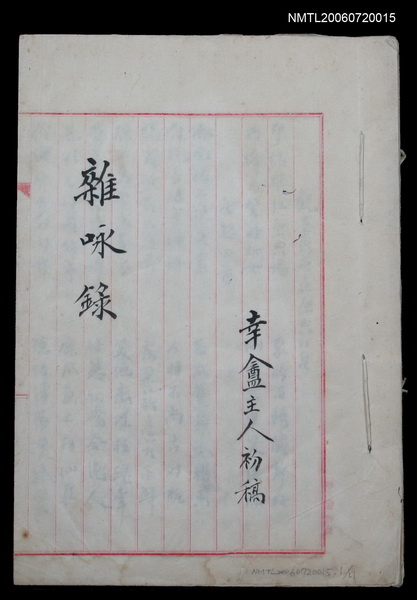 NMTL20060720015
幸盦主人初稿
雜咏錄